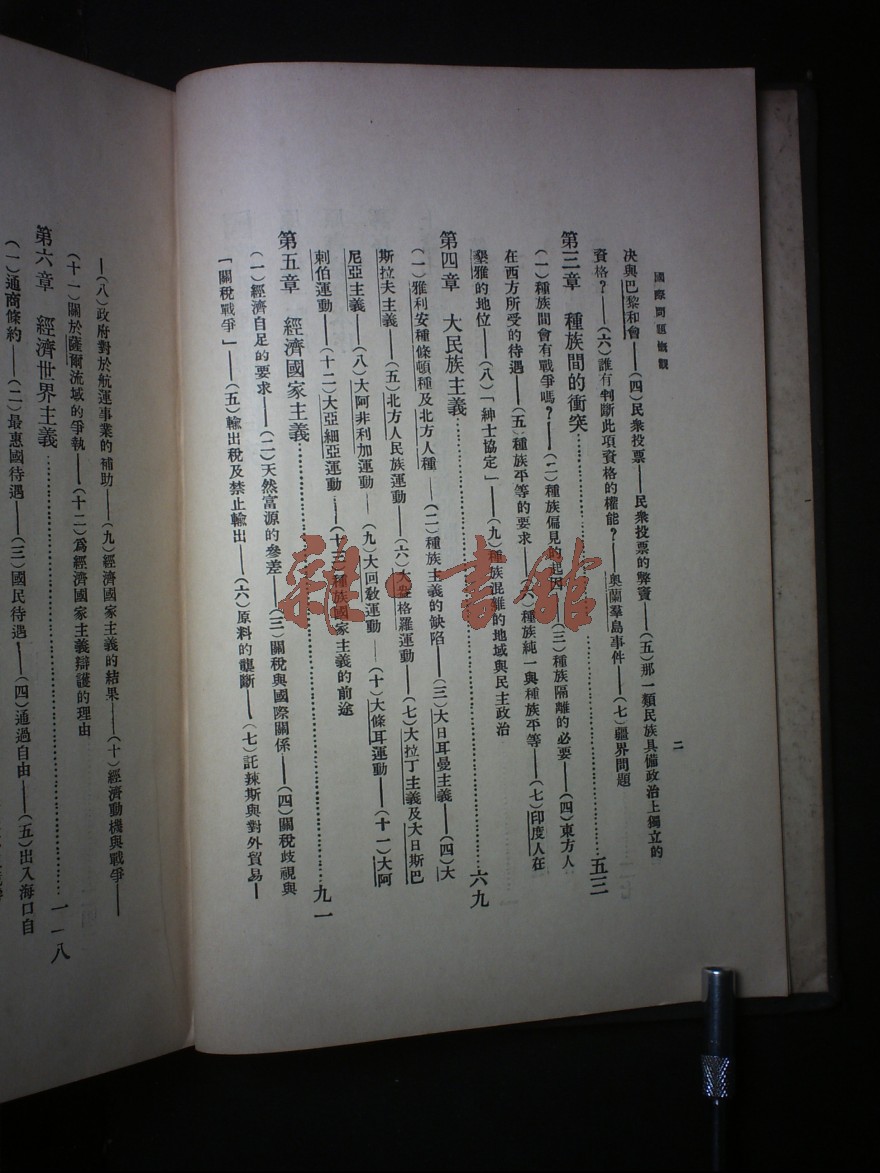 國際問題概觀
二
決與巴黎和會——(四)民衆投票——民衆投票的弊竇——(五)那一類民族具備政治上獨立的
資格?——(六)誰有判斷此項資格的權能?——奧蘭羣島事件——(七)疆界問題
第三章 種族間的衝突……五三
(一)種族間會有戰爭嗎?——(二)種族偏見的起因——(三)種族隔離的必要——(四)東方人
在西方所受的待遇——(五)種族平等的要求——(六)種族純一與種族平等——(七)印度人在
墾雅的地位——(八)「紳士協定」——(九)種族混雜的地域與民主政治
第四章 大民族主義……六九
(一)雅利安種條頓種及北方人種——(二)種族主義的缺陷——(三)大日耳曼主義——(四)大
斯拉夫主義——(五)北方人民族運動——(六)大盎格羅運動——(七)大拉丁主義及大日斯巴
尼亞主義——(八)大阿非利加運動——(九)大回敎運動——(十)大條耳運動——(十一)大阿
剌伯運動——(十二)大亞細亞運動——(十三)種族國家主義的前途
第五章 經濟國家主義……九一
(一)經濟自足的要求——(二)天然富源的參差——(三)關稅與國際關係——(四)關稅歧視與
「關稅戰爭」——(五)輸出稅及禁止輸出——(六)原料的壟斷——(七)託辣斯與對外貿易—
—(八)政府對於航運事業的補助——(九)經濟國家主義的結果——(十)經濟動機與戰爭——
(十一)關於薩爾流域的爭執——(十二)爲經濟國家主義辯護的理由
第六章 經濟世界主義……一一八
(一)通商條約——(二)最惠國待遇——(三)國民待遇——(四)通過自由——(五)出入海口自
雜·書館